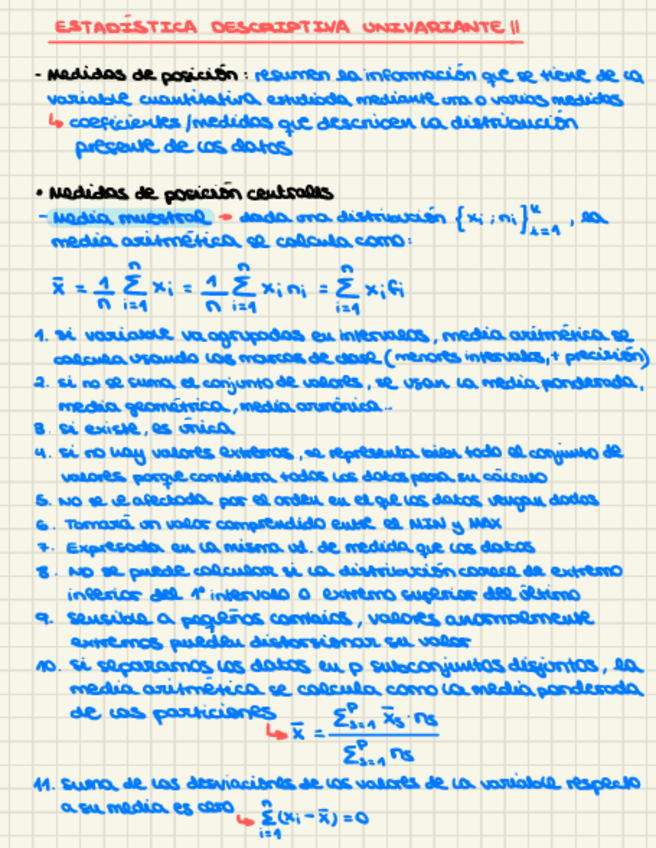 ESTADÍSTICA DESCRIPTIVA UNIVARIANTE II
- Medidas de posición: resumen la información que se tiene de la
variable cuantitativa estudiada mediante una o varias medidas
↳ coeficientes/medidas que describen la distribución
presente de los datos
• Medidas de posición centrales
- Media muestral → dada una distribución {xi ; ni}^k_{i=1}, la
media aritmética se calcula como:
x̄ = 1/n Σ^n_{i=1} xi = 1/n Σ^n_{i=1} xi ni = Σ^n_{i=1} xi fi
1. Si variable va agrupadas en intervalos, media aritmética se
calcula usando las marcas de clase (menores intervalos, + precisión)
2. si no se suma el conjunto de valores, se usan la media ponderada,
media geométrica, media armónica...
3. Si existe, es única
4. si no hay valores extremos, se representa bien todo el conjunto de
valores porque considera todos los datos para su cálculo
5. No se ve afectada por el orden en el que los datos vengan dados
6. Tomará un valor comprendido entre el MIN y MAX
7. Expresada en la misma ud. de medida que los datos
8. No se puede calcular si la distribución carece de extremo
inferior del 1º intervalo o extremo superior del último
9. sensible a pequeños cambios, valores anormalmente
extremos pueden distorsionar su valor
10. Si separamos los datos en p subconjuntos disjuntos, la
media aritmética se calcula como la media ponderada
de las particiones ↳ x̄ = Σ^p_{s=1} x̄s · ns / Σ^p_{s=1} ns
11. suma de las desviaciones de los valores de la variable respecto
a su media es cero ↳ Σ^n_{i=1} (xi - x̄) = 0